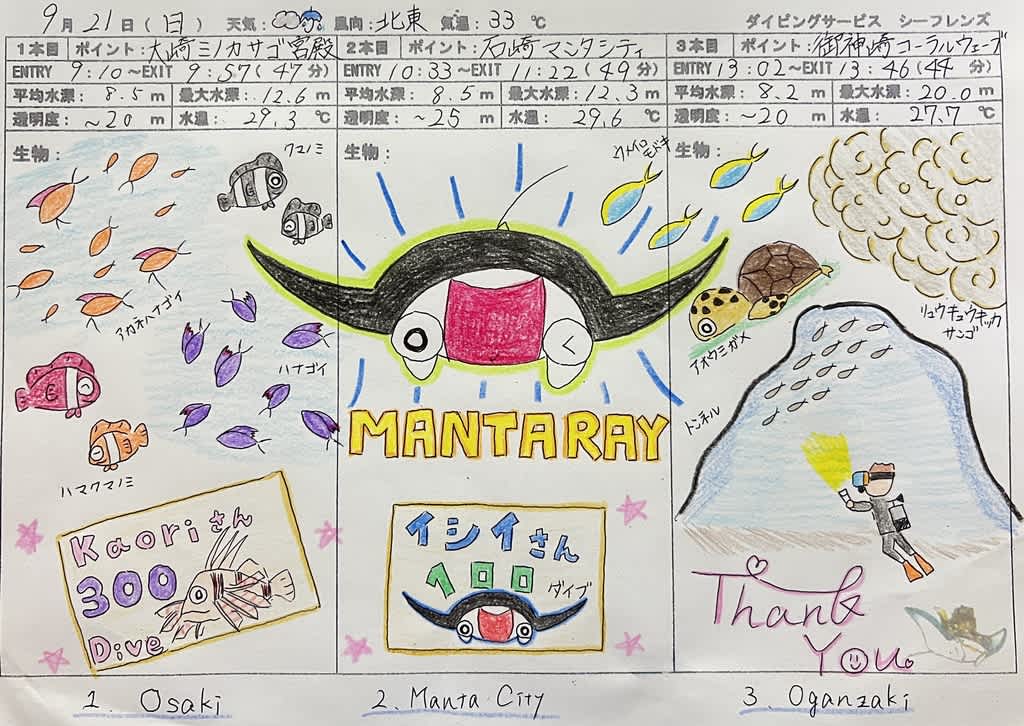 9月21日(日) 天気: 風向:北東 気温:33℃ ダイビングサービス シーフレンズ
1本目 ポイント:大崎ミノカサゴ宮殿
ENTRY 9:10~EXIT 9:57(47分)
平均水深: 8.5m 最大水深: 12.6m
透明度: ~20m 水温: 29.3℃
生物:
クマノミ
アカネハナゴイ
ハナゴイ
ハマクマノミ
Kaoriさん
300
Dive
2本目 ポイント:石崎マンタシティ
ENTRY 10:33~EXIT 11:22(49分)
平均水深: 8.5m 最大水深: 12.3m
透明度: ~25m 水温: 29.6℃
生物:
MANTARAY
イシイさん
100
ダイブ
3本目 ポイント:御神崎コーラルウェーブ
ENTRY 13:02~EXIT 13:46(44分)
平均水深: 8.2m 最大水深: 20.0m
透明度: ~20m 水温: 27.7℃
生物:
アオウミガメ
リュウキュウキッカ
サンゴ
トンネル
Thank
You
1. Osaki
2. Manta City
3. Oganzaki